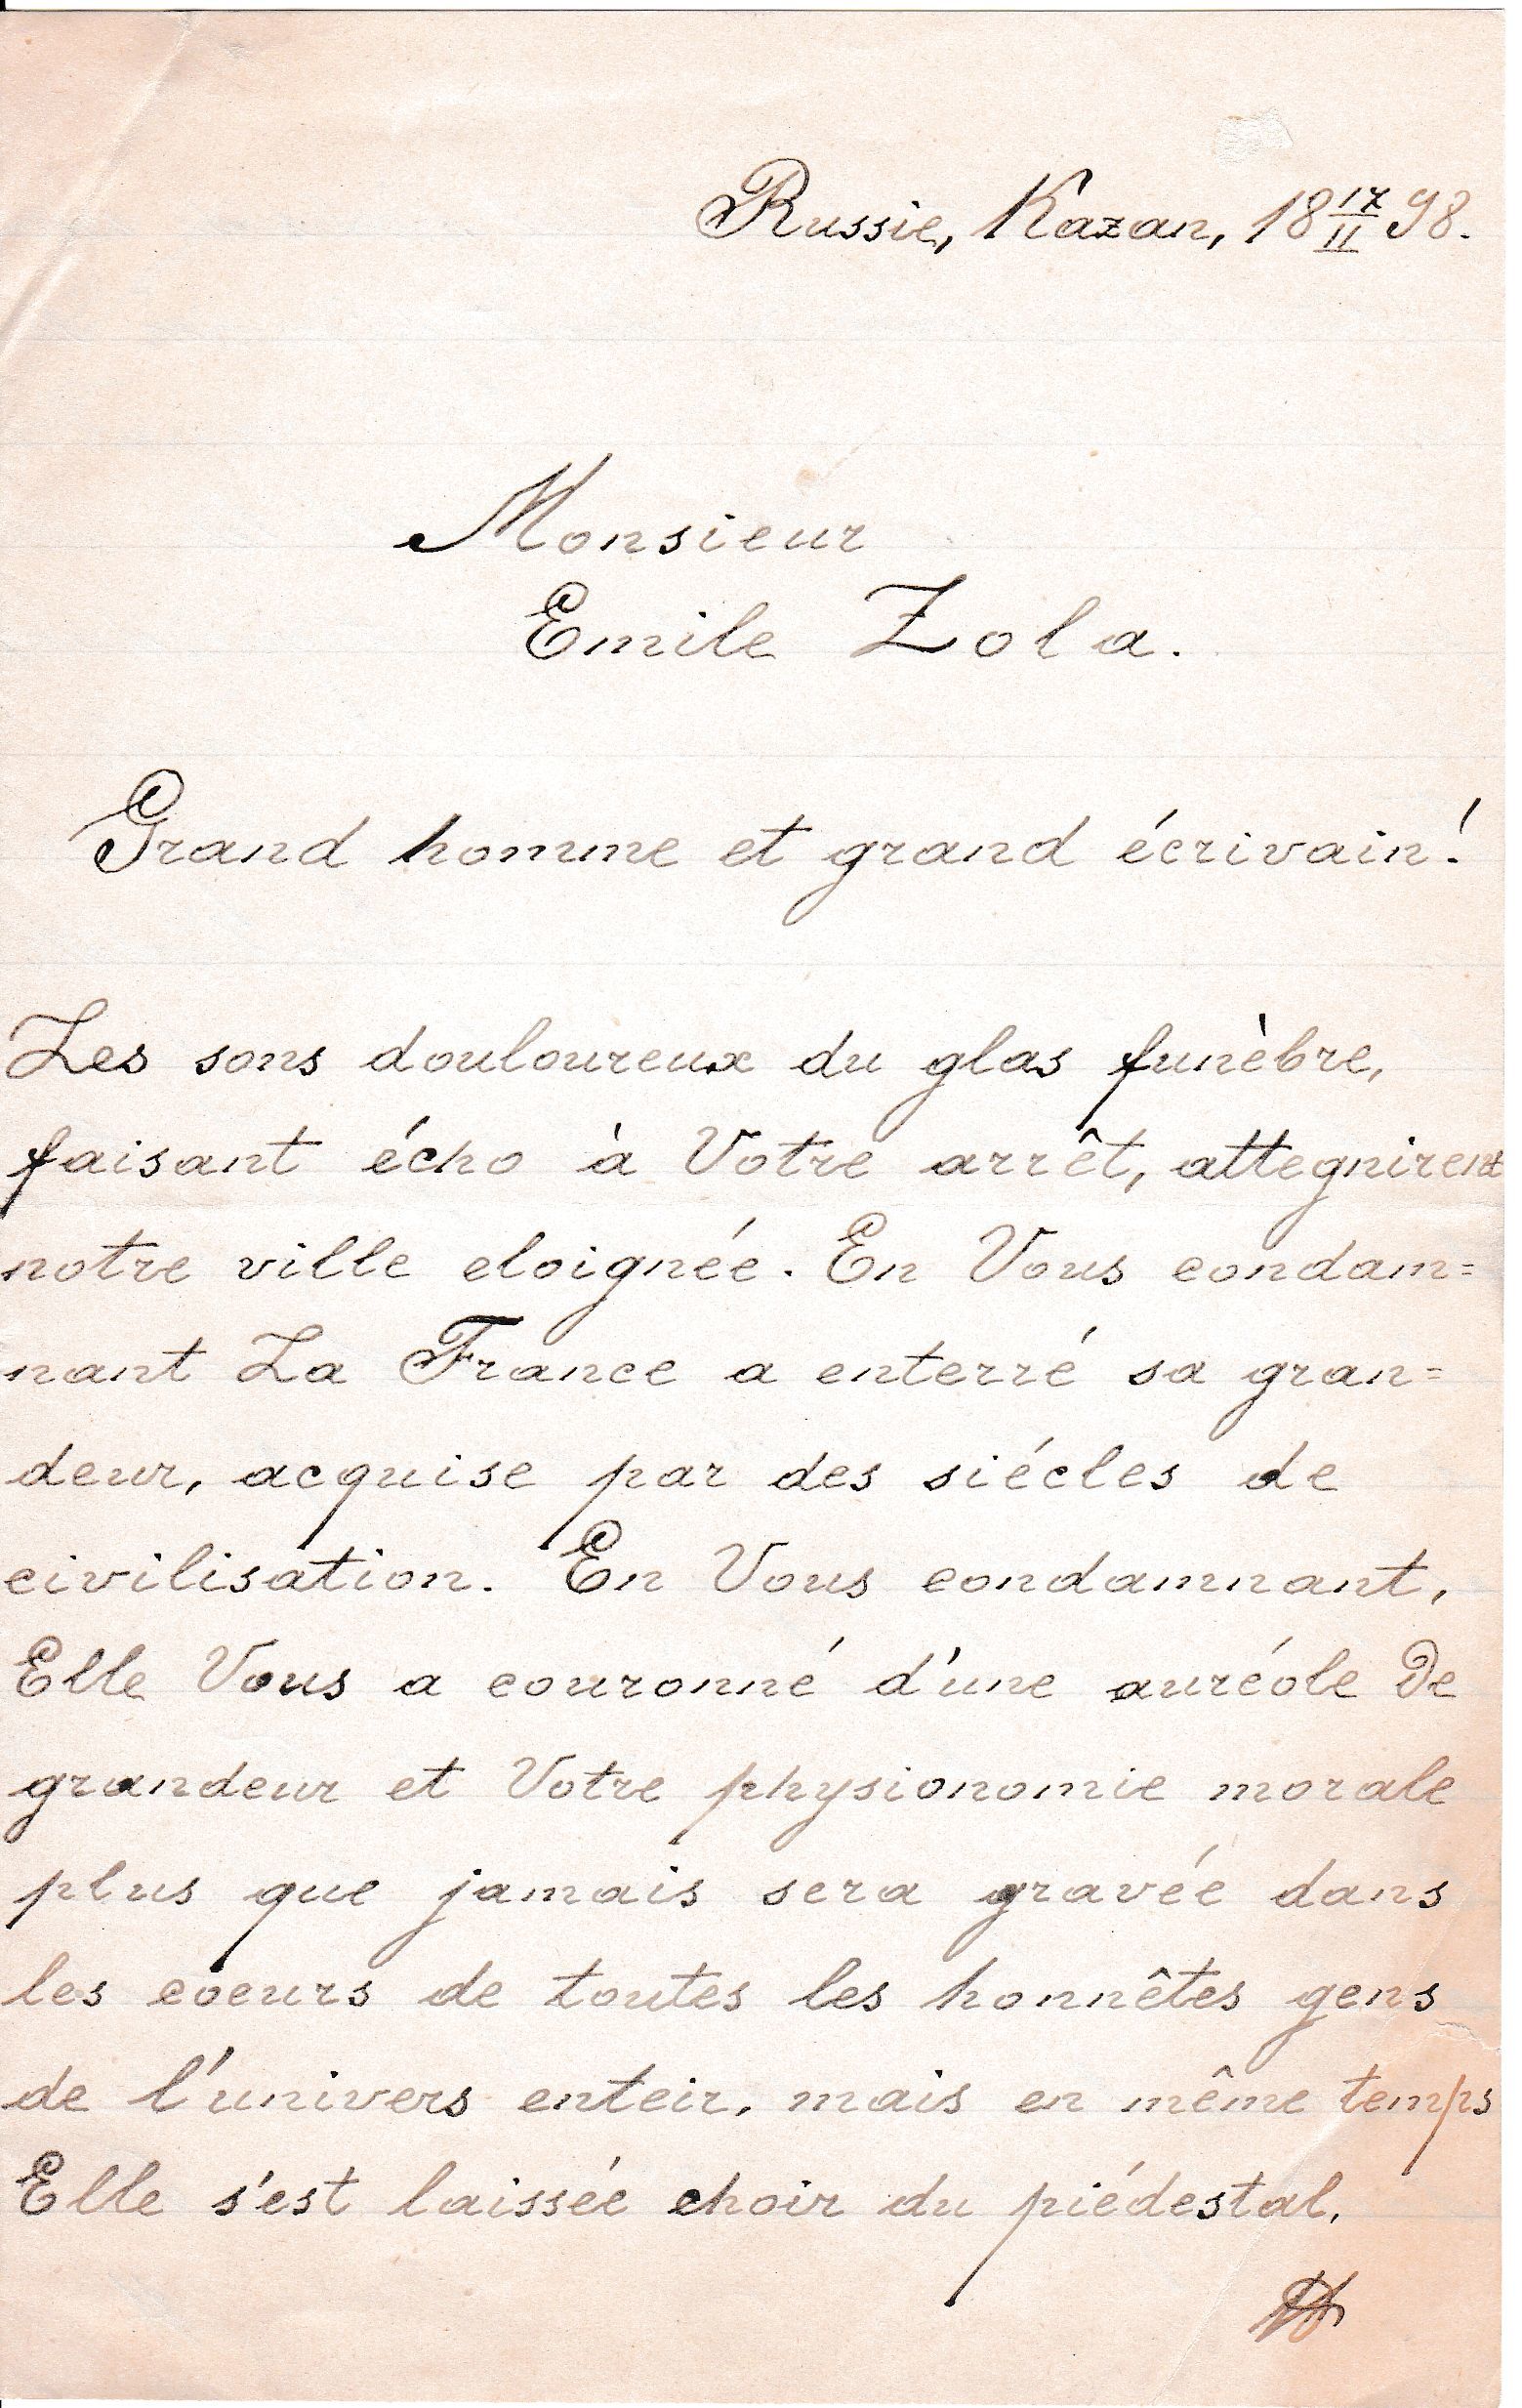 Russie, Kazan, 18 17/II 98.
Monsieur
Emile Zola.
Grand homme et grand écrivain!
Les sons douloureux du glas funèbre,
faisant écho à Votre arrêt, attegnirent
notre ville eloignée. En Vous condam=
nant La France a enterré sa gran=
deur, acquise par des siécles de
civilisation. En Vous condamnant,
Elle Vous a couronné d'une auréole De
grandeur et Votre physionomie morale
plus que jamais sera gravée dans
les coeurs de toutes les honnêtes gens
de l'univers enteir, mais en même temps
Elle s'est laissée choir du piédestal,